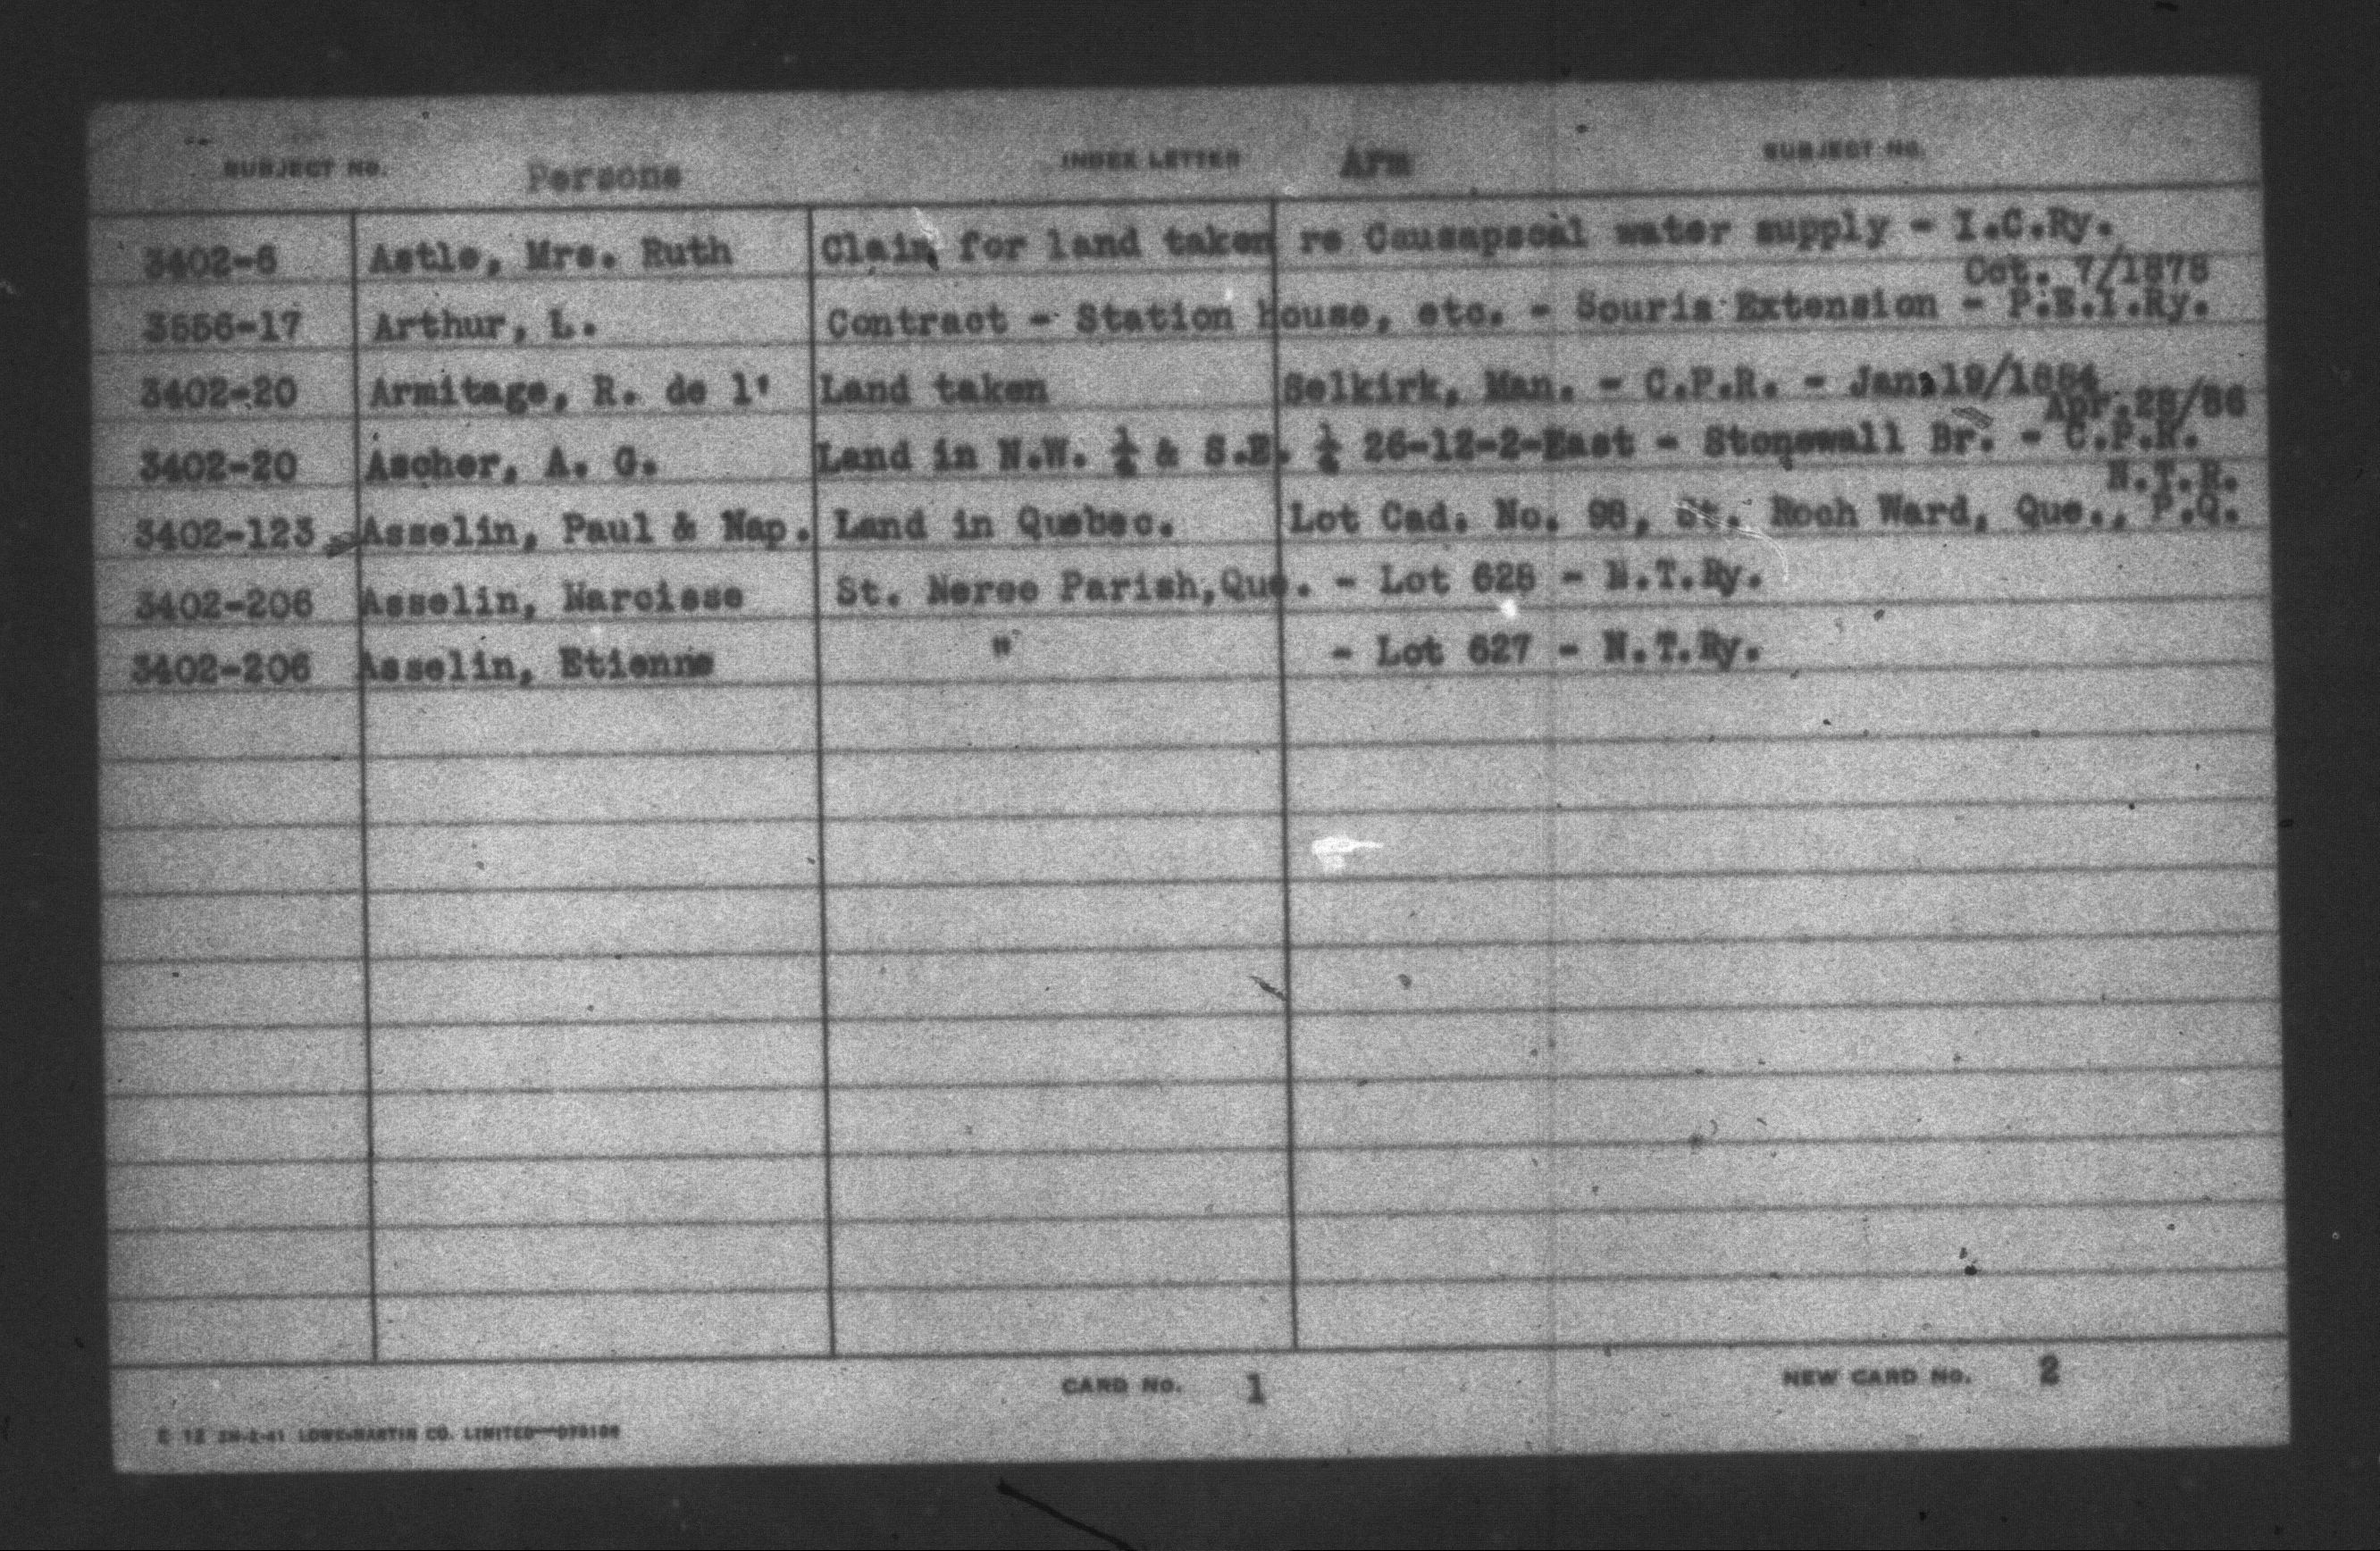 SUBJECT No. Persons INDEX LETTER Arm SUBJECT No.
3402-6 Astle, Mrs. Ruth Claim for land taken re Causapscal water supply - I.C.Ry.
Oct. 7/1878
3556-17 Arthur, L. Contract - Station house, etc. - Souris Extension - P.E.I.Ry.
3402-20 Armitage, R. de l' Land taken Selkirk, Man. - C.P.R. - Jan.19/1884
Apr.28/86
3402-20 Ascher, A. G. Land in N.W. ¼ & S.E. ¼ 26-12-2-East - Stonewall Br. - C.P.R.
N.T.R.
3402-123 Asselin, Paul & Nap. Land in Quebec. Lot Cad. No. 98, St. Roch Ward, Que., P.Q.
3402-206 Asselin, Narcisse St. Neree Parish, Que. - Lot 628 - N.T.Ry.
3402-206 Asselin, Etienne " - Lot 627 - N.T.Ry.
CARD No. 1 NEW CARD No. 2
E 12 LOWE-MARTIN CO. LIMITED